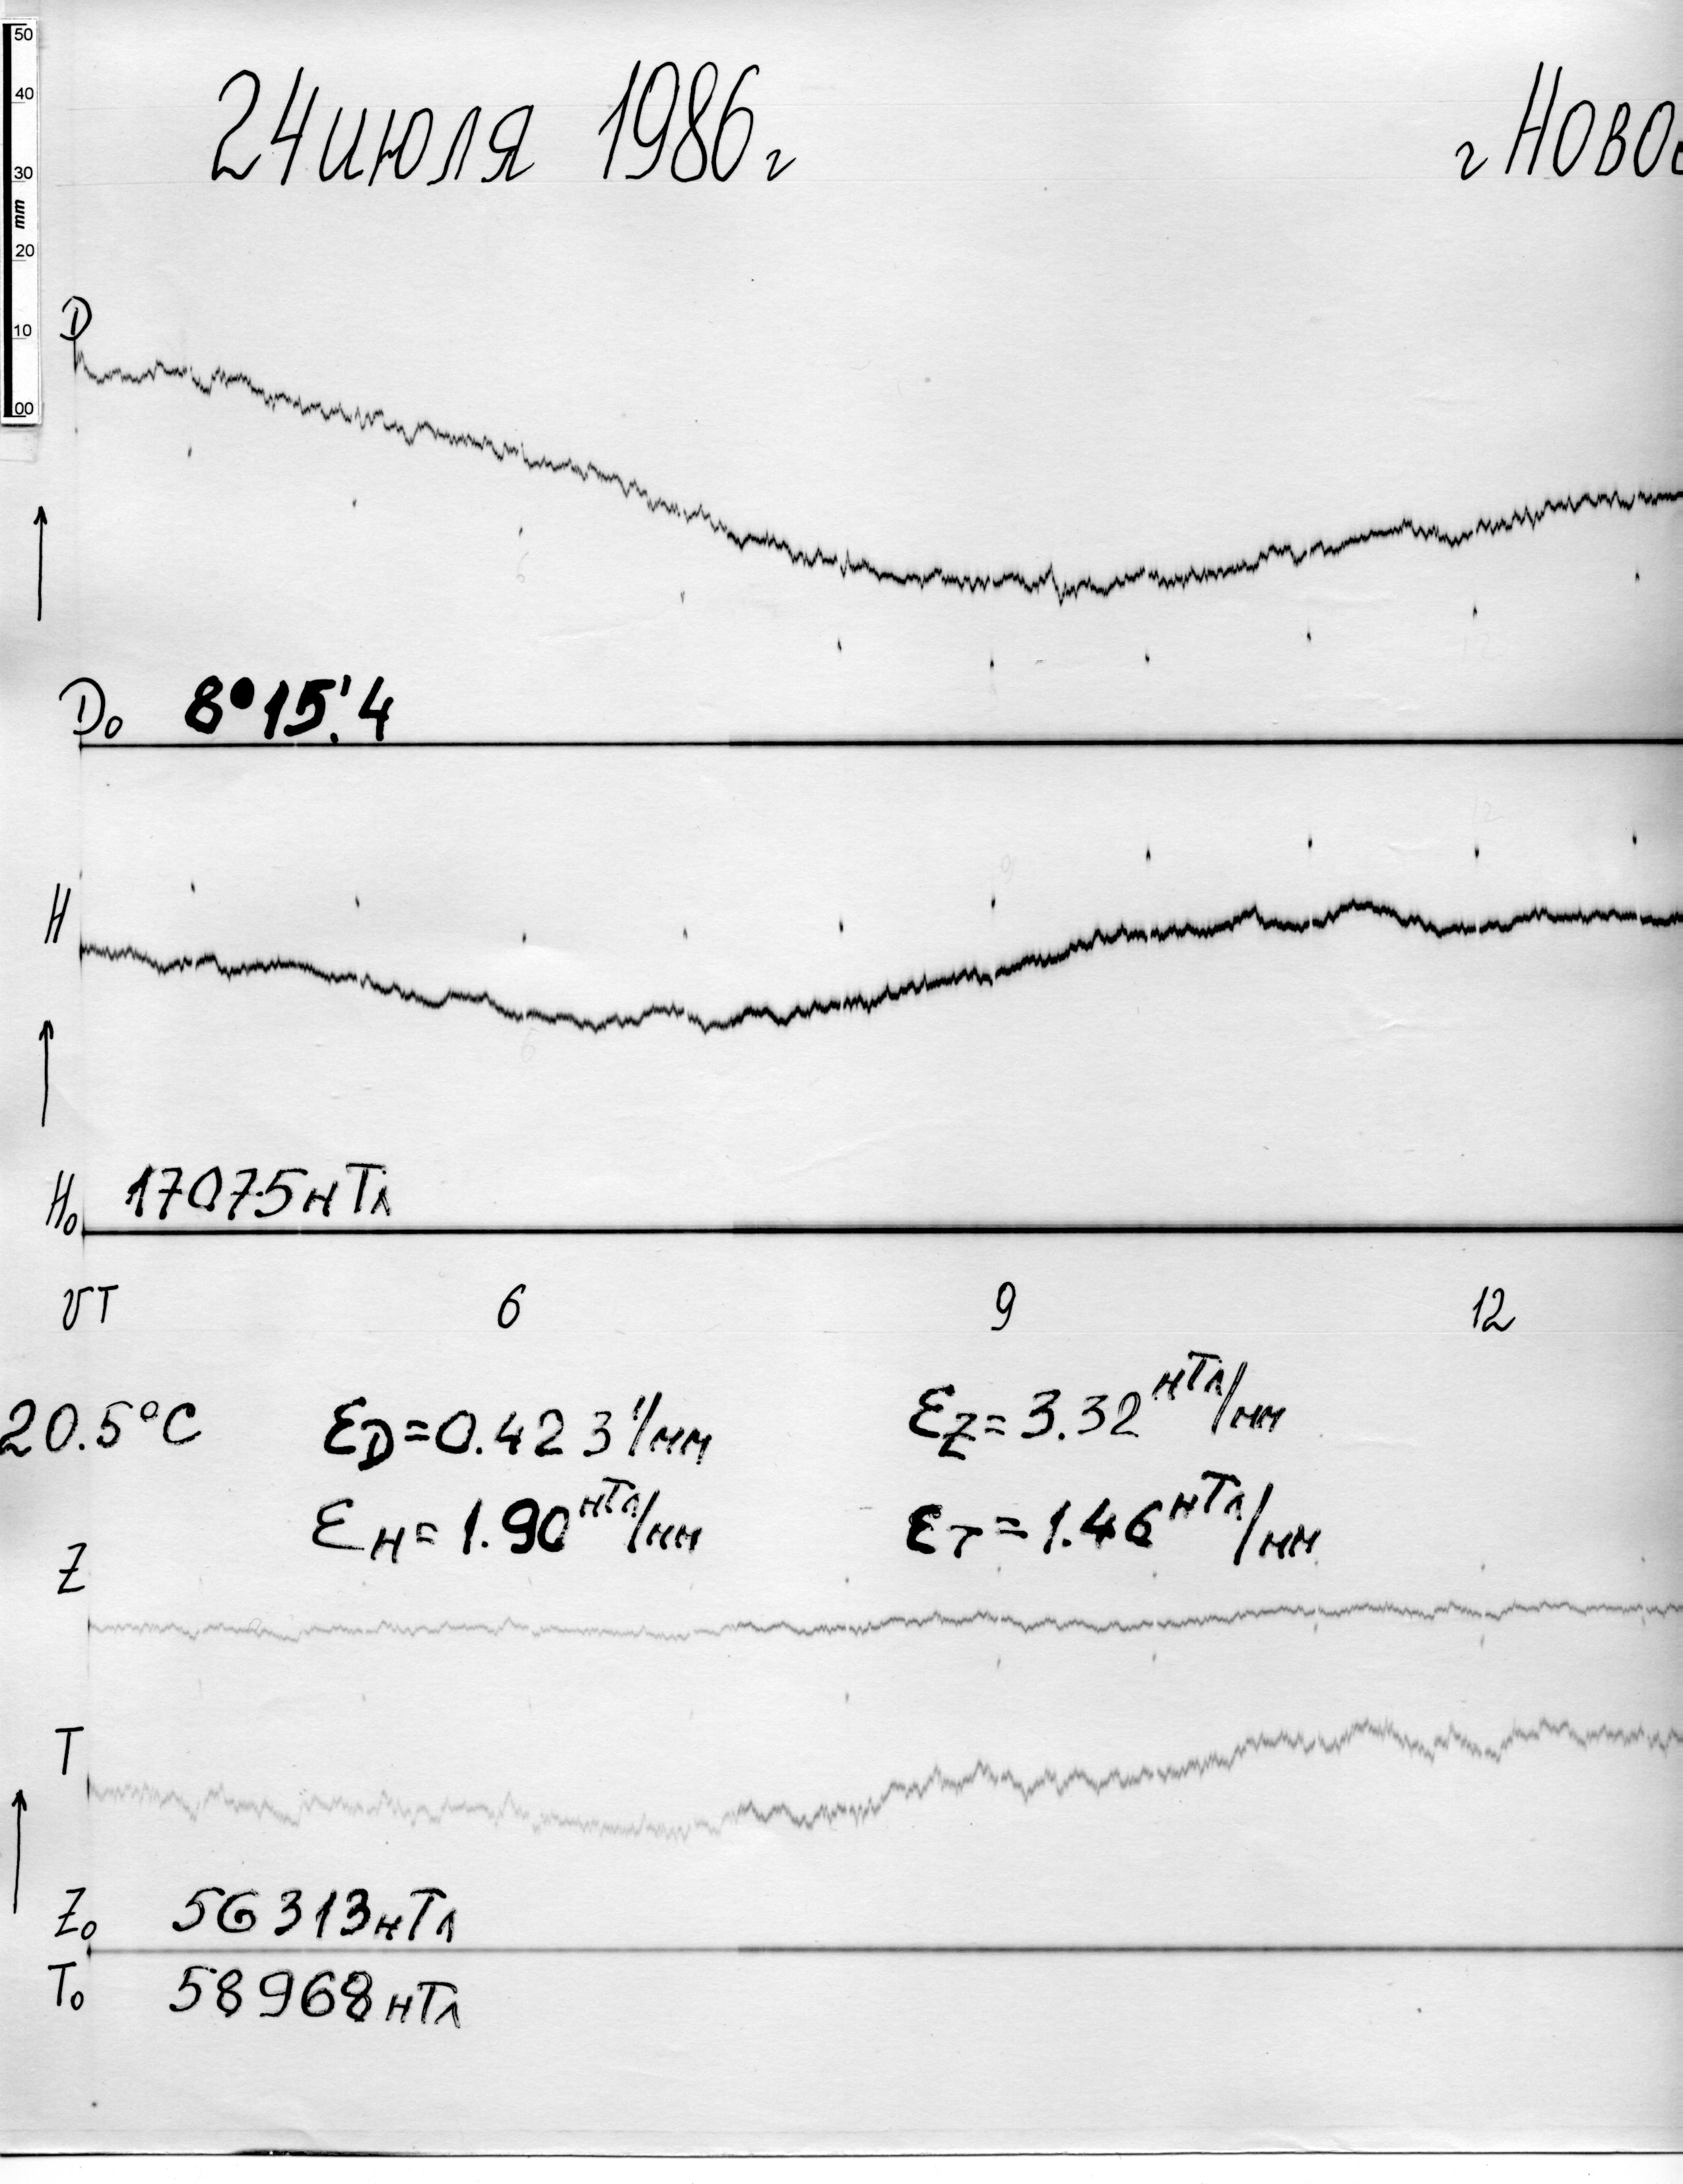 50
40
30
mm
20
10
00
24 июля 1986 г
г Ново
D
D₀ 8°15.'4
H
H₀ 17075 нТл
UT 6 9 12
20.5°C
ƐD = 0.423'/мм
ƐH = 1.90 нТл/мм
ƐZ = 3.32 нТл/мм
ƐT = 1.46 нТл/мм
Z
T
Z₀ 56313 нТл
T₀ 58968 нТл